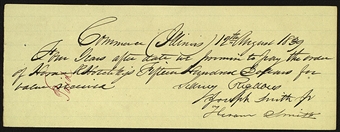 Commerce (Illinois) 12th August 1839
Four Years after date we promise to pay the order
of Horace R Hotchkiss Fifteen Hundred Dollars for
value received
Sidney Rigdon
Joseph Smith Jr
Hiram Smith